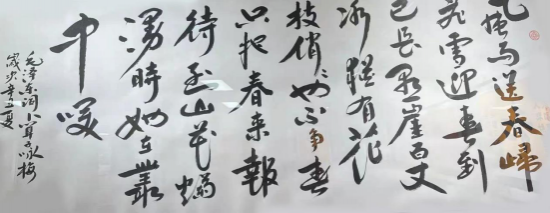 風雨送春歸
飛雪迎春到
已是懸崖百丈
冰猶有花
枝俏々也不争春
只把春来報
待到山花爛
漫時她在叢
中笑
毛泽东词卜算子咏梅
歲次辛丑夏